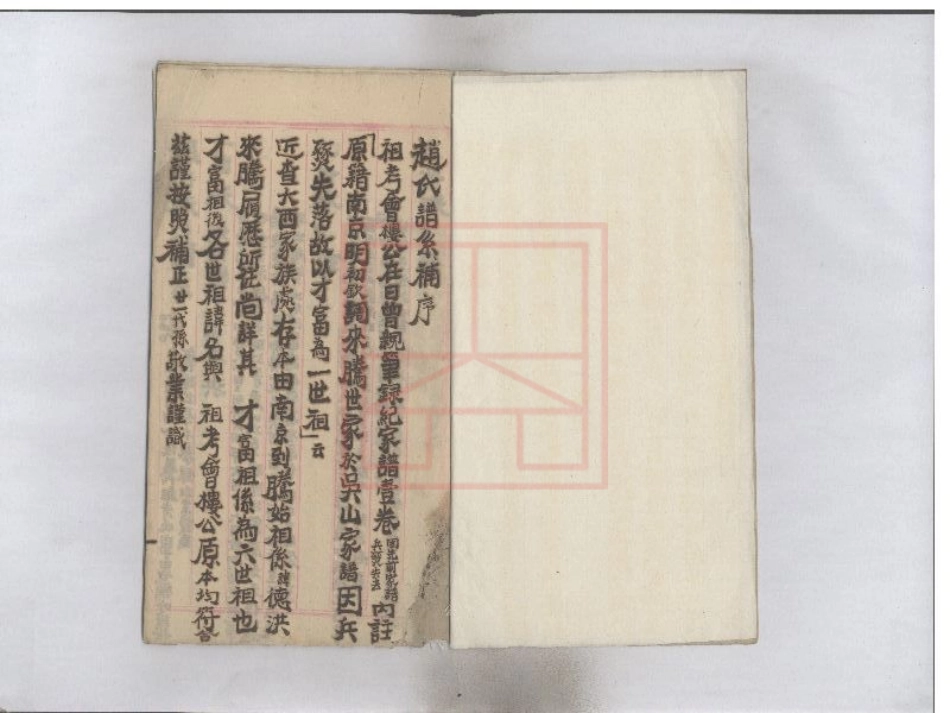 趙氏譜系補序
祖考會樓公在日曾親筆録紀家譜壹卷 內註
「原籍南京明初欽調來騰世家於吳山家譜因兵
燹失落故以才富為一世祖」云
近查大西家族處存本由南京到騰始祖係諱德洪
來騰履歷所註尚詳其 才富祖係為六世祖也
才富祖後各世祖諱名與 祖考會樓公原本均符合
茲謹按照補正 廿一代孫敬業謹識